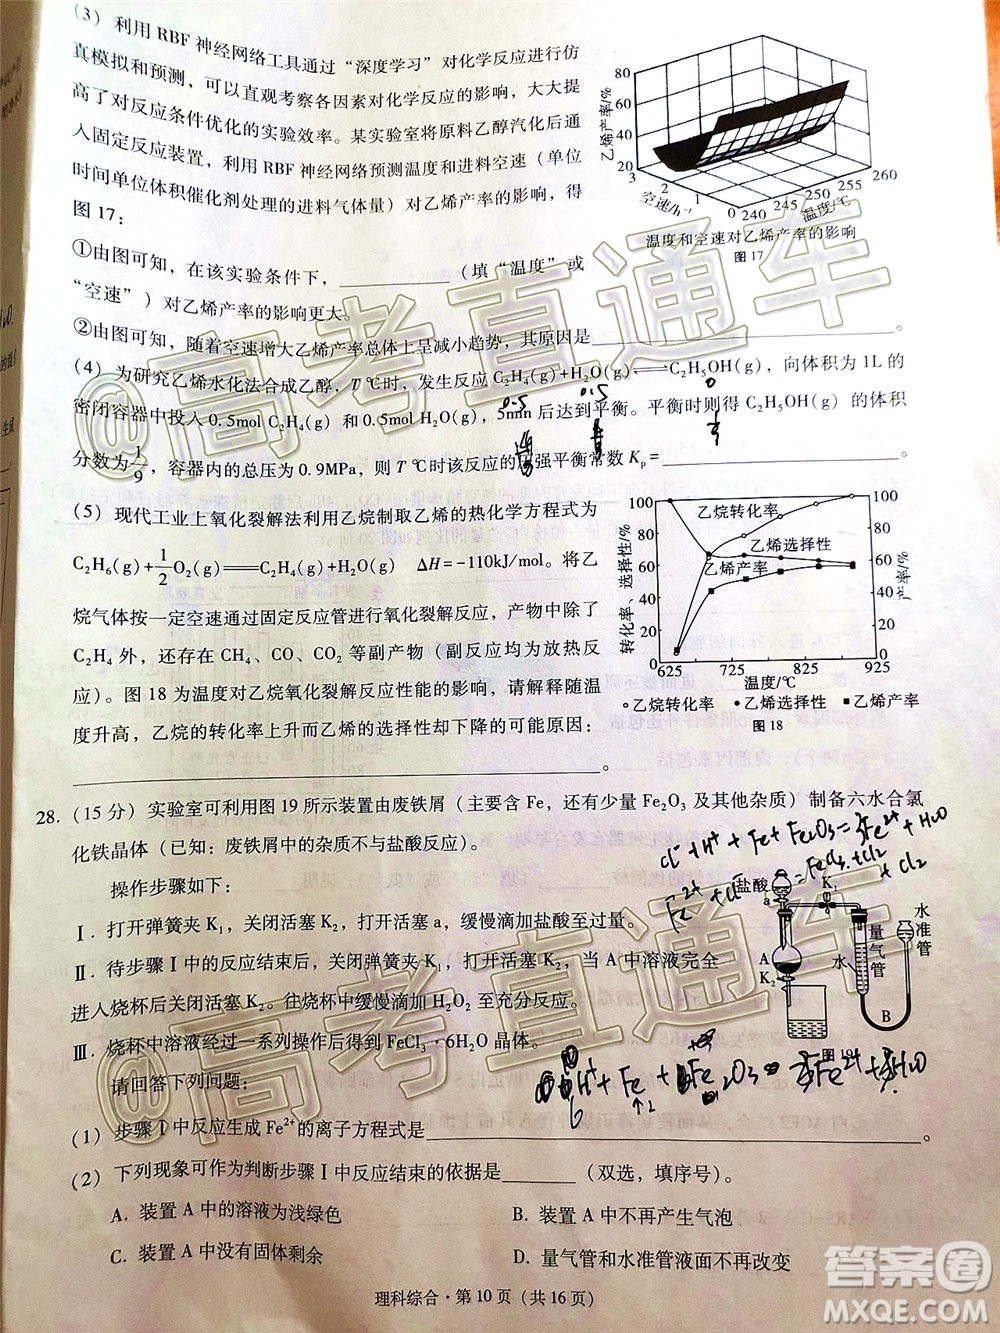 (3) 利用 RBF 神经网络工具通过“深度学习”对化学反应进行仿
真模拟和预测，可以直观考察各因素对化学反应的影响，大大提
高了对反应条件优化的实验效率。某实验室将原料乙醇汽化后通
入固定反应装置，利用 RBF 神经网络预测温度和进料空速（单位
时间单位体积催化剂处理的进料气体量）对乙烯产率的影响，得
图 17：
乙烯产率/%
80
60
40
20
3
2
1
0
空速/h⁻¹
240 245 250 255 260
温度/℃
温度和空速对乙烯产率的影响
图 17
①由图可知，在该实验条件下，________（填“温度”或
“空速”）对乙烯产率的影响更大。
②由图可知，随着空速增大乙烯产率总体上呈减小趋势，其原因是________。
(4) 为研究乙烯水化法合成乙醇，T ℃时，发生反应 C₂H₄(g)+H₂O(g)⇌C₂H₅OH(g)，向体积为 1L 的
密闭容器中投入 0.5mol C₂H₄(g) 和 0.5mol H₂O(g)，5min 后达到平衡。平衡时则得 C₂H₅OH(g) 的体积
0.5 0.5 0
分数为 1/9，容器内的总压为 0.9MPa，则 T ℃时该反应的压强平衡常数 Kₚ=________
(5) 现代工业上氧化裂解法利用乙烷制取乙烯的热化学方程式为
C₂H₆(g)+1/2 O₂(g)=C₂H₄(g)+H₂O(g) ΔH=−110kJ/mol。将乙
烷气体按一定空速通过固定反应管进行氧化裂解反应，产物中除了
C₂H₄ 外，还存在 CH₄、CO、CO₂ 等副产物（副反应均为放热反
应）。图 18 为温度对乙烷氧化裂解反应性能的影响，请解释随温
度升高，乙烷的转化率上升而乙烯的选择性却下降的可能原因：
________。
转化率、选择性/%
100
80
60
40
20
0
乙烷转化率
乙烯选择性
乙烯产率
100
80
60
40
20
0
产率/%
625 725 825 925
温度/℃
○乙烷转化率 •乙烯选择性 ■乙烯产率
图 18
28. (15 分) 实验室可利用图 19 所示装置由废铁屑（含 Fe，还有少量 Fe₂O₃ 及其他杂质）制备六水合氯
化铁晶体（已知：废铁屑中的杂质不与盐酸反应）。
操作步骤如下：
Ⅰ. 打开弹簧夹 K₁，关闭活塞 K₂，打开活塞 a，缓慢滴加盐酸至过量。
Ⅱ. 待步骤Ⅰ中的反应结束后，关闭弹簧夹 K₁，打开活塞 K₂，当 A 中溶液完全
进入烧杯后关闭活塞 K₂。往烧杯中缓慢滴加 H₂O₂ 至充分反应。
Ⅲ. 烧杯中溶液经过一系列操作后得到 FeCl₃·6H₂O 晶体。
请回答下列问题：
盐酸
a
K₁
A
K₂
水
量气管
水准管
B
(1) 步骤Ⅰ中反应生成 Fe²⁺的离子方程式是________
(2) 下列现象可作为判断步骤Ⅰ中反应结束的依据是________（双选，填序号）。
A. 装置 A 中的溶液为浅绿色
B. 装置 A 中不再产生气泡
C. 装置 A 中没有固体剩余
D. 量气管和水准管液面不再改变
理科综合·第 10 页（共 16 页）
@高考直通车
@高考直通车
答案圈
MXQE.COM